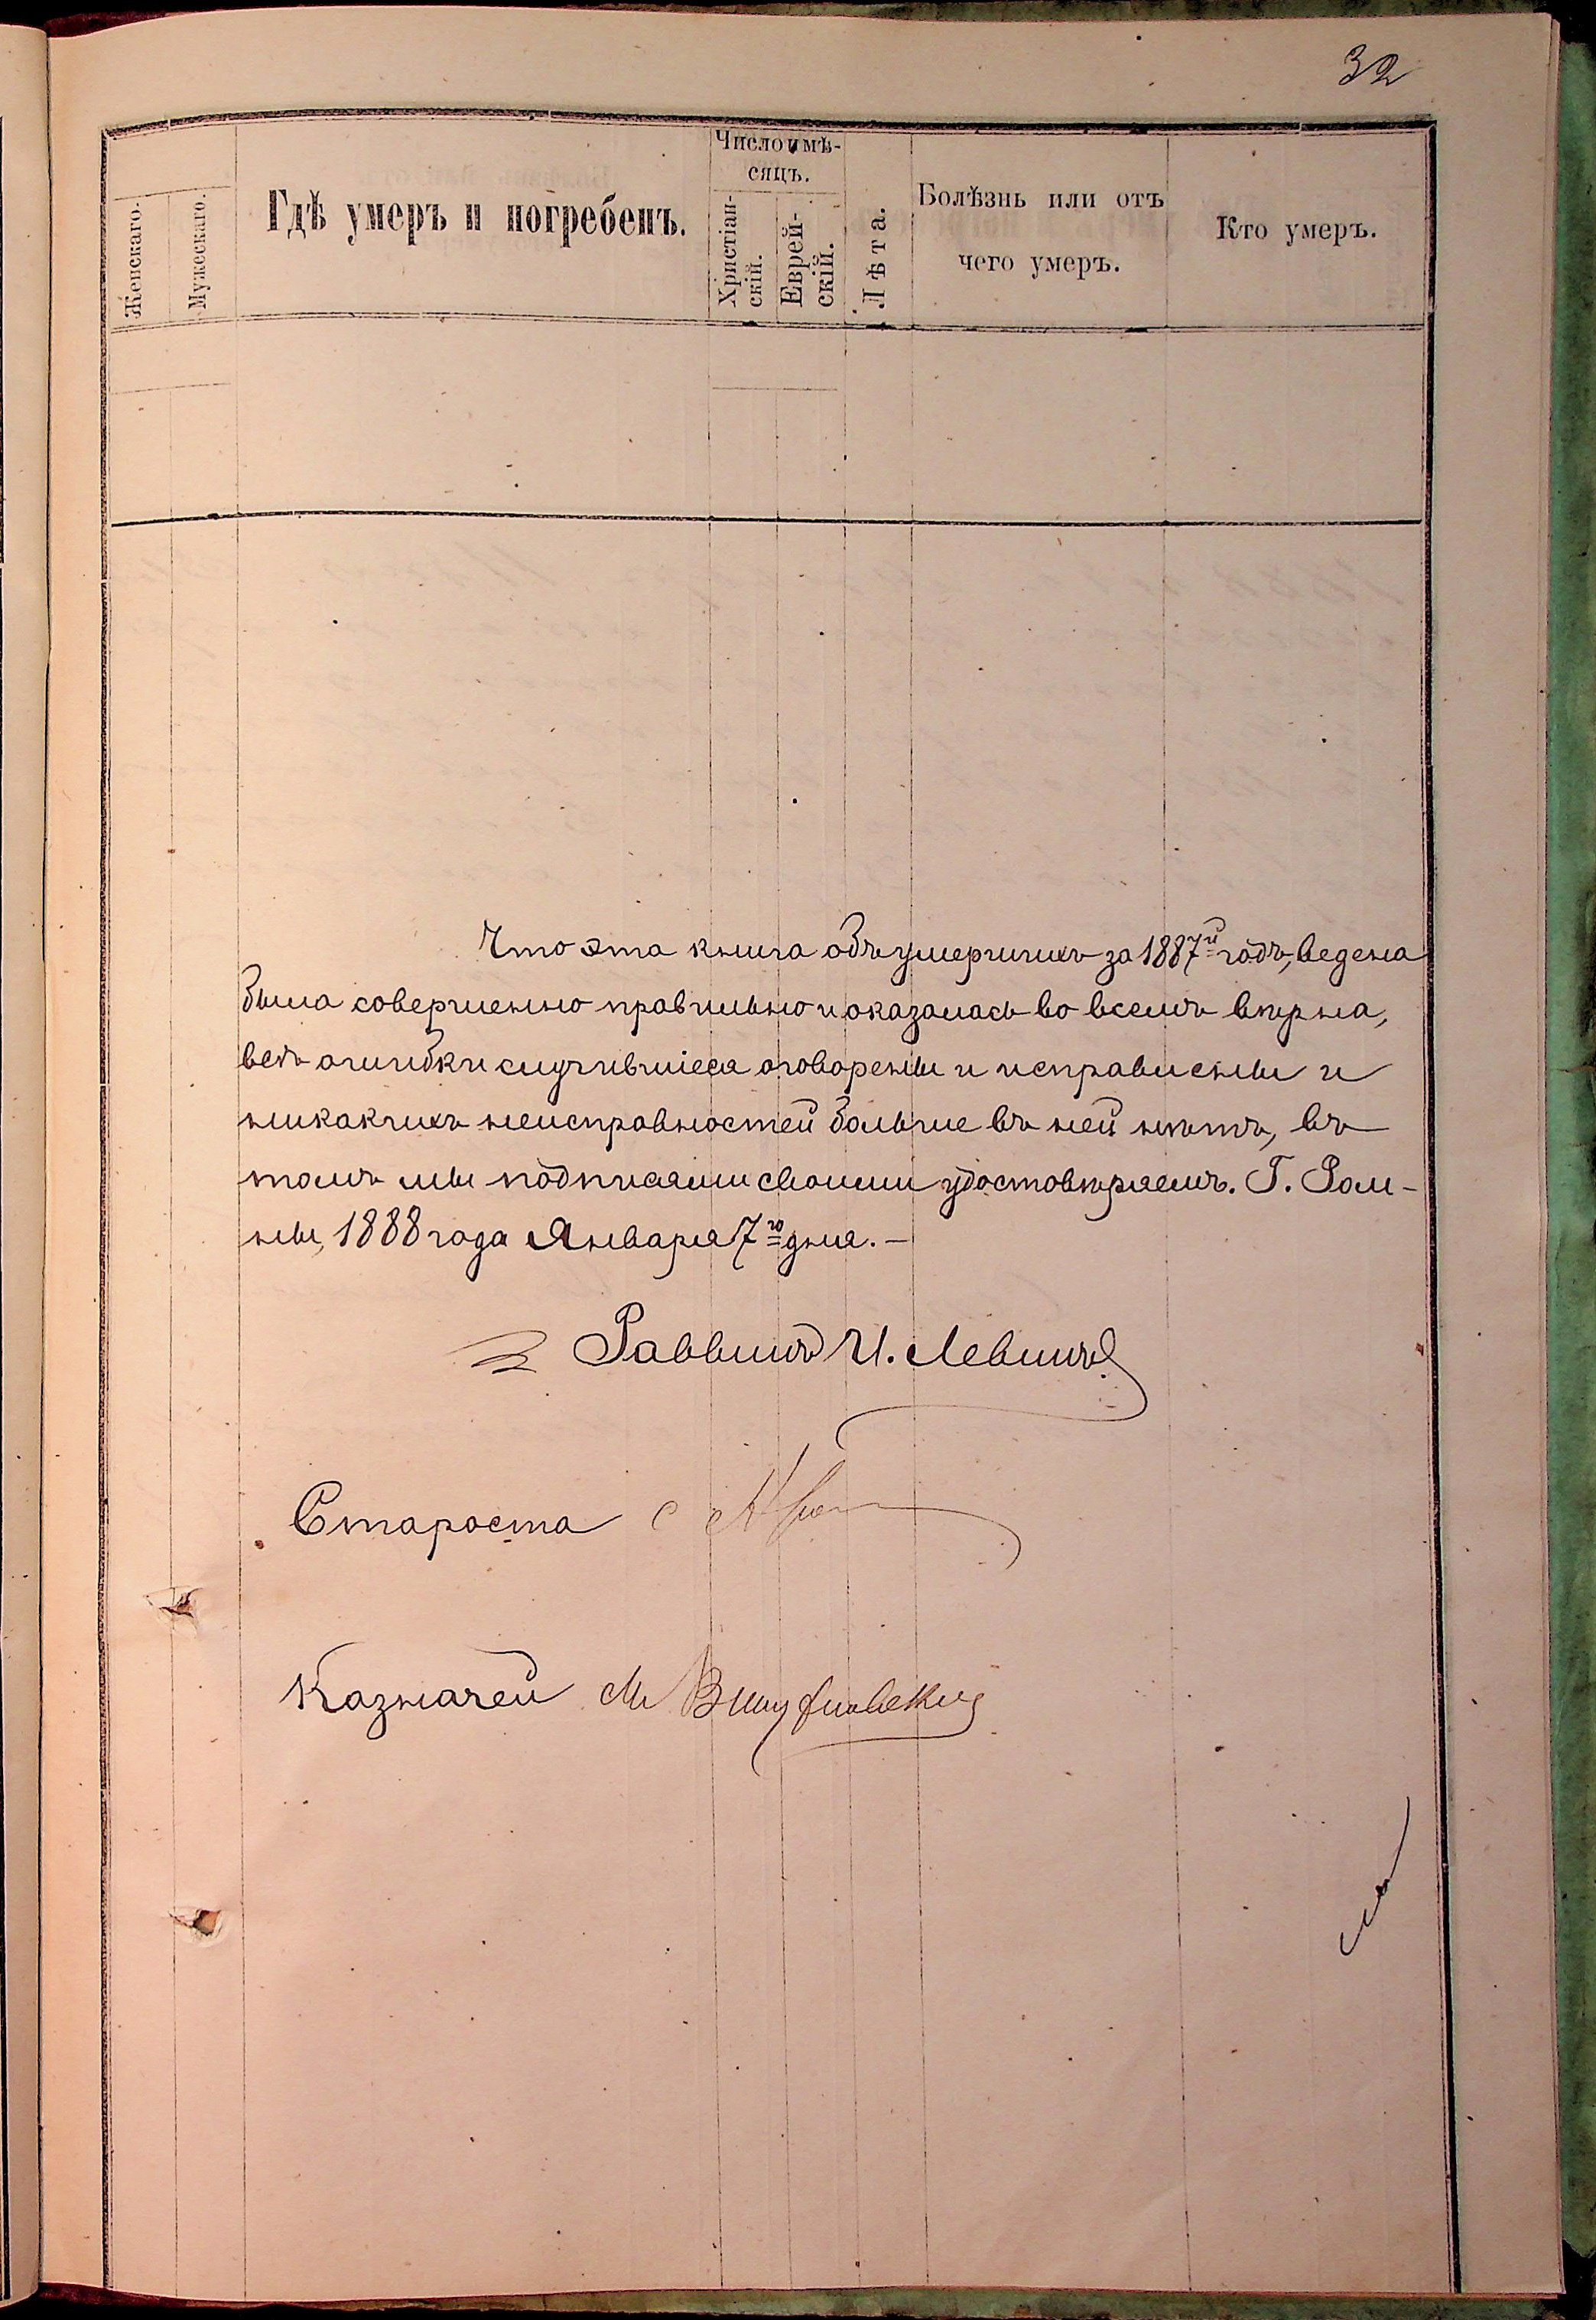 32
Женскаго.
Мужескаго.
Гдѣ умеръ и погребенъ.
Число и мѣ-
сяцъ.
Христіан-
скій.
Еврей-
скій.
Лѣта.
Болѣзнь или отъ
чего умеръ.
Кто умеръ.
Что эта книга объ умершихъ за 1887й годъ, ведена
была совершенно правильно и оказалась во всемъ вѣрна,
всѣ ошибки случившіеся оговорены и исправлены и
никакихъ неисправностей больше въ ней нѣтъ, въ
томъ мы подписями своими удостовѣряемъ. Г. Ром-
ны, 1888 года Января 7го дня. —
Раввинъ И. Левинъ
Староста
Казначей М